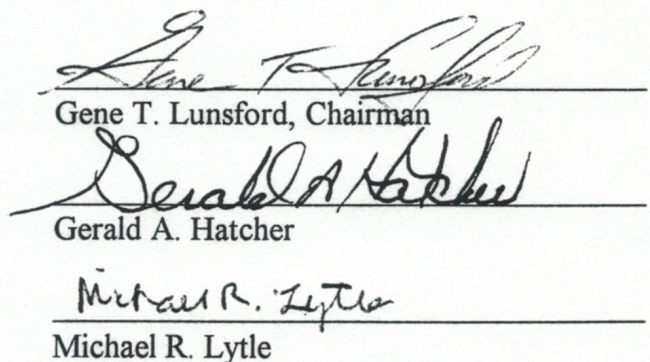 Gene T. Lunsford
Gene T. Lunsford, Chairman
Gerald A Hatcher
Gerald A. Hatcher
Michael R. Lytle
Michael R. Lytle